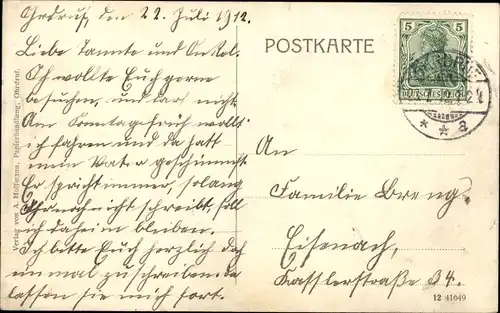 Ohrdruf, den 22. Juli 1912.
Liebe Tannte und Onkel.
Ich wollte Euch gerne
besuchen, und darf nicht
Am Sonntag früh wollt
ich fahren und da hatt
mein Vater geschimpft
Er spricht immer, solang
Ihr noch nicht schreibt, soll
ich daheim bleiben.
Ich bitte Euch herzlich doch
einmal zu schreiben. da
lassen sie mich fort.
Verlag von A. Hoffmann, Papierhandlung, Ohrdruf.
POSTKARTE
5 5
DEUTSCHES REICH
OHRDRUF
* * a
An
Familie Breng
Eisenach.
Kasslerstraße 34.
12 41649